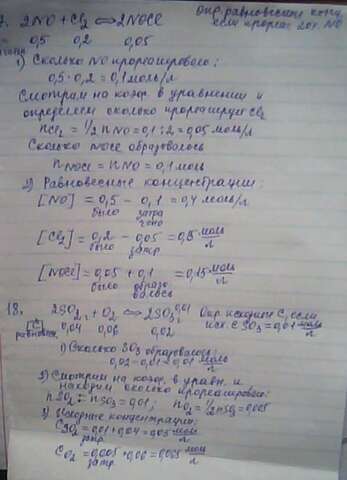 2NO + Cl2 ⇔ 2NOCl
Опр. равновесные конц.
если прореаг. 20% NO
0,5 0,2 0,05
1) Сколько NO прореагировало:
0,5·0,2 = 0,1 моль/л
Смотрим на коэф. в уравнении и
определяем сколько прореагирует Cl2
nCl2 = 1/2 nNO = 0,1:2 = 0,05 моль/л
Сколько NOCl образовалось
nNOCl = nNO = 0,1 моль
2) Равновесные концентрации:
[NO] = 0,5 - 0,1 = 0,4 моль/л
было затрачено
[Cl2] = 0,2 - 0,05 = 0,15 моль/л
было затр.
[NOCl] = 0,05 + 0,1 = 0,15 моль/л
было образовалось
18. 2SO2 + O2 ⇔ 2SO3 0,01
Опр. исходные C, если
исх. C SO3 = 0,01 моль/л
[C] равновесн. 0,04 0,06 0,02
1) Сколько SO3 образовалось:
0,02 - 0,01 = 0,01 моль/л
2) Смотрим на коэф. в уравн. и
находим сколько прореагировало:
nSO2 = nSO3 = 0,01; nO2 = 1/2 nSO2 = 0,005
3) Исходные концентрации:
CSO2 = 0,01 + 0,04 = 0,05 моль/л
затр.
CO2 = 0,005 + 0,06 = 0,065 моль/л
затр.